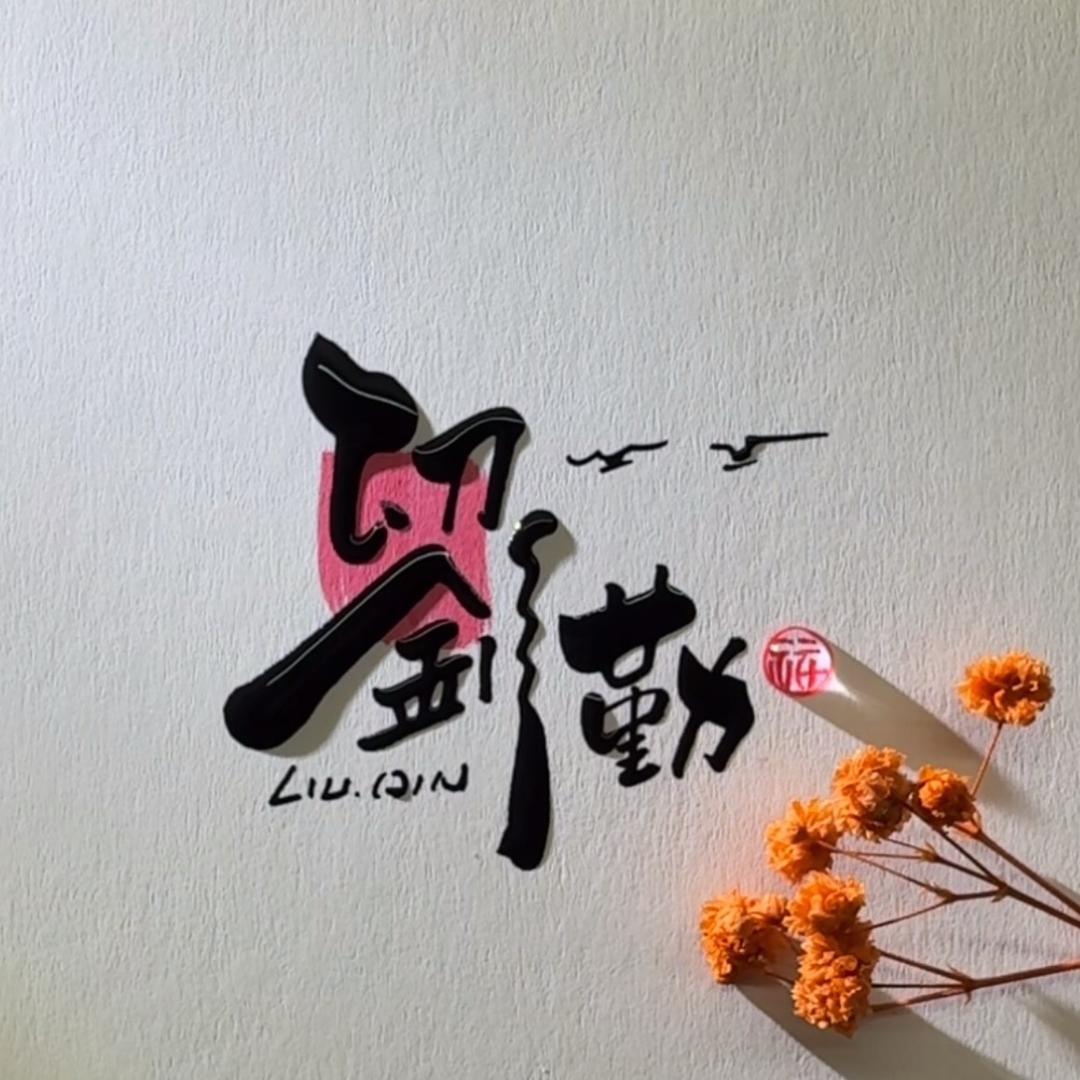 劉勤
LIU.QIN